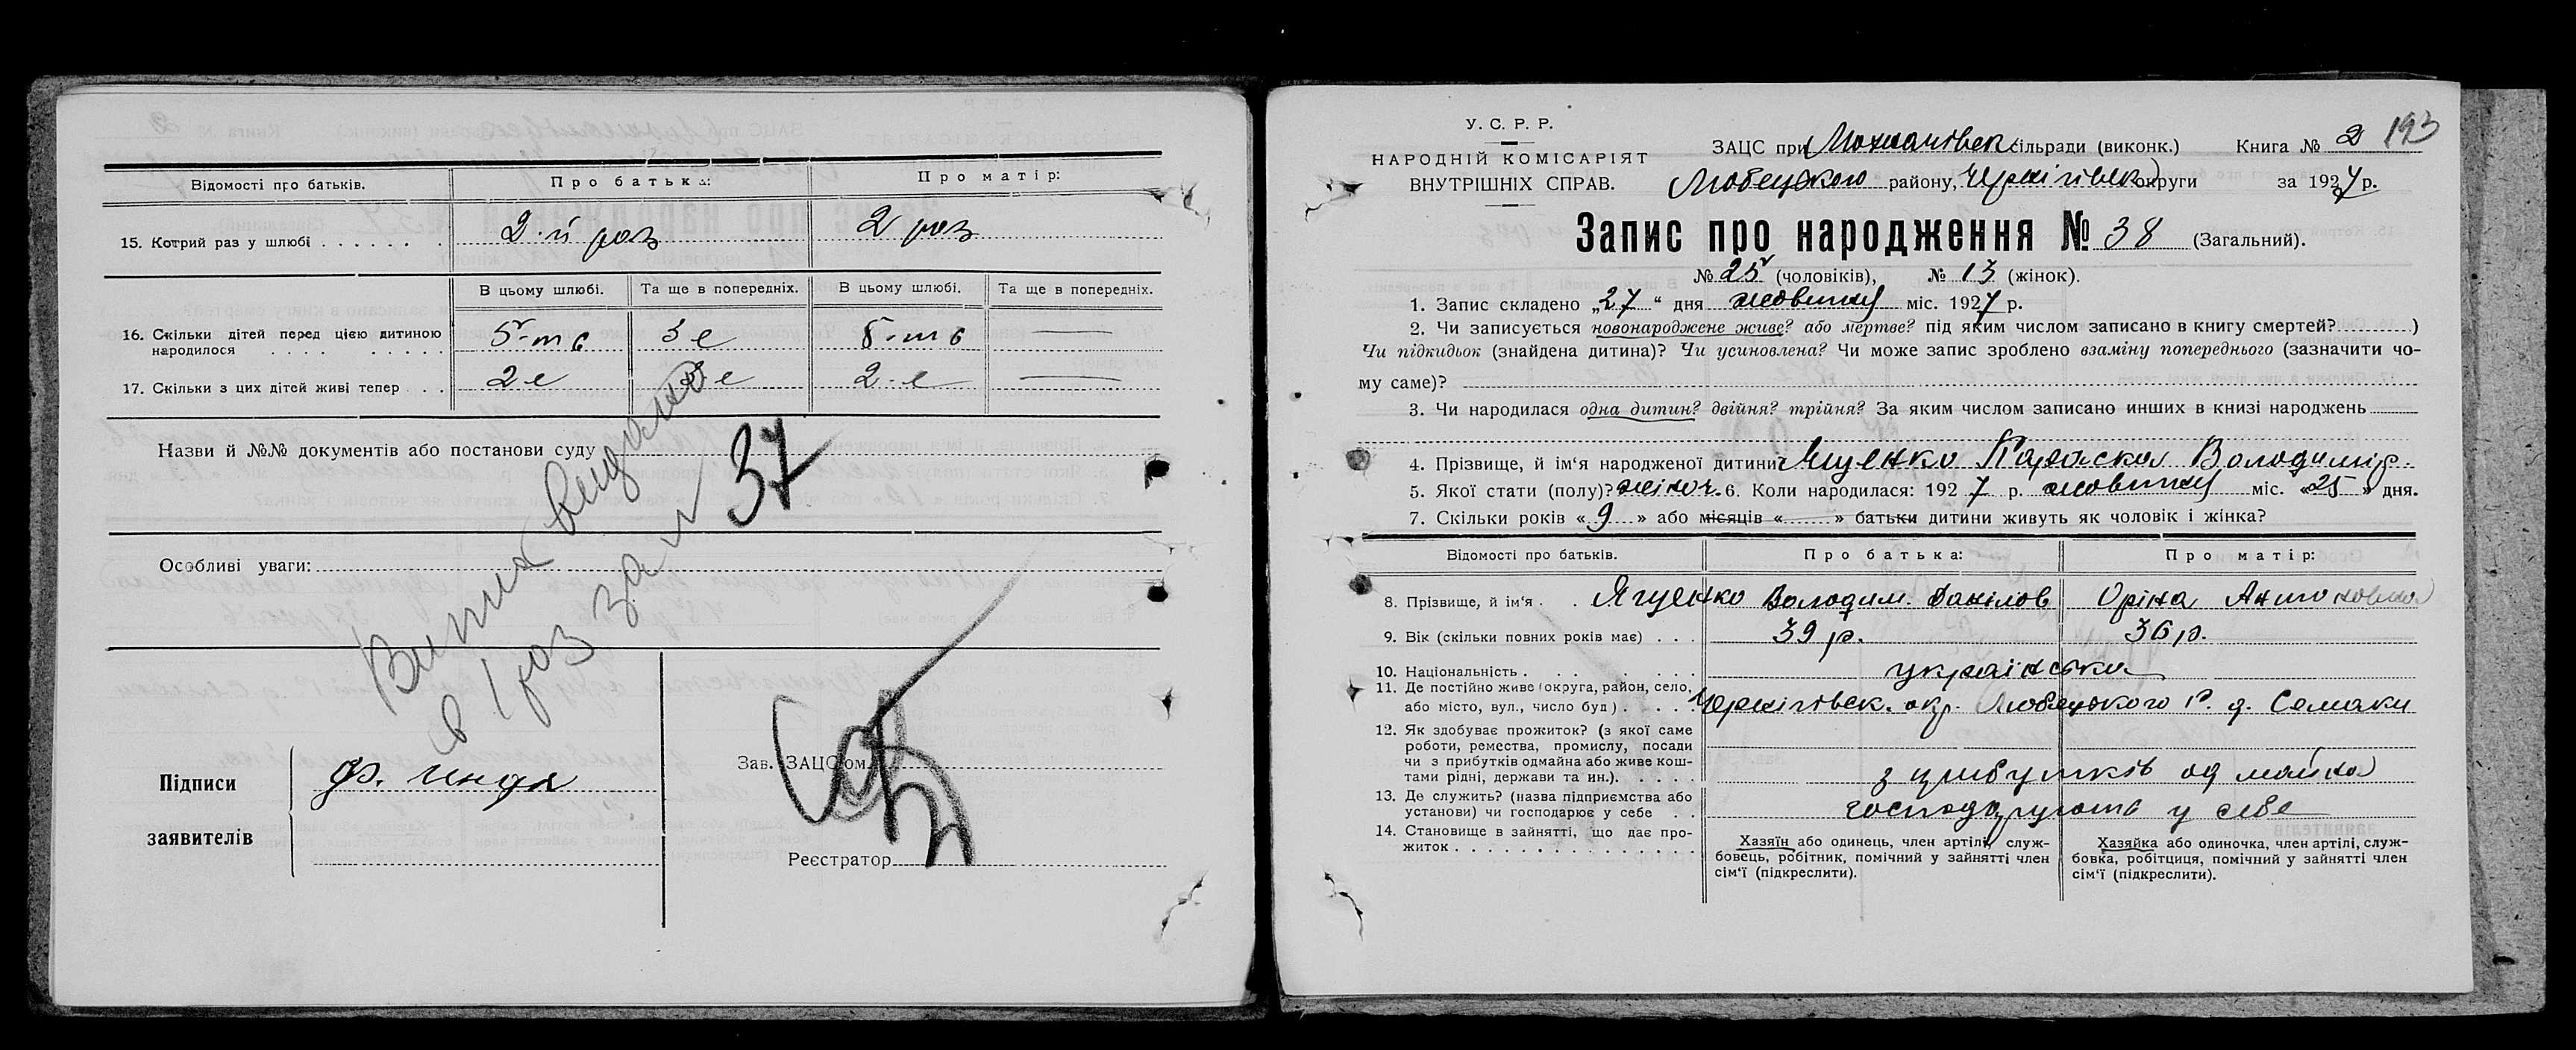 Відомості про батьків.
Про батька:
Про матір:
15. Котрий раз у шлюбі
2-й раз
2 раз
В цьому шлюбі.
Та ще в попередніх.
В цьому шлюбі.
Та ще в попередніх.
16. Скільки дітей перед цією дитиною
народилося
5-ть
3є
5-ть
17. Скільки з цих дітей живі тепер
2є
2-є
Назви й №№ документів або постанови суду
37
Особливі уваги:
в 1 раз за
Підписи
заявителів
Зав. ЗАЦС'ом
Реєстратор
У. С. Р. Р.
НАРОДНІЙ КОМІСАРІЯТ
ВНУТРІШНІХ СПРАВ.
ЗАЦС при сільради (виконк.) Книга № 2 193
Любецького району, Чернігівськ округи за 1927 р.
Запис про народження № 38 (Загальний).
№ 25 (чоловіків), № 13 (жінок).
1. Запис складено „27" дня жовтня міс. 1927 р.
2. Чи записується новонароджене живе? або мертве? під яким числом записано в книгу смертей? )
Чи підкидьок (знайдена дитина)? Чи усиновлена? Чи може запис зроблено взаміну попереднього (зазначити чо-
му саме)?
3. Чи народилася одна дитин? двійня? трійня? За яким числом записано инших в книзі народжень
4. Прізвище, й ім'я народженої дитини? Ященко Параска Володимір.
5. Якої стати (полу)? жіноч. 6. Коли народилася: 1927 р. жовтня міс. «25» дня.
7. Скільки років «9» або місяців « » батьки дитини живуть як чоловік і жінка?
Відомості про батьків.
Про батька:
Про матір:
8. Прізвище, й ім'я
Ященко Володим. Данілов
Оріна Антоновна
9. Вік (скільки повних років має)
39 р.
36 р.
10. Національність
українська
11. Де постійно живе (округа, район, село,
або місто, вул., число буд)
Чернігівск. окр. Любецького Р. д. Семаки
12. Як здобуває прожиток? (з якої саме
роботи, ремества, промислу, посади
чи з прибутків одмайна або живе кош-
тами рідні, держави та ин.).
з прибутків од майна
13. Де служить? (назва підприємства або
установи) чи господарює у себе
господарують у себе
14. Становище в зайнятті, що дає про-
житок
Хазяїн або одинець, член артілі, служ-
бовець, робітник, помічний у зайнятті член
сім'ї (підкреслити).
Хазяйка або одиночка, член артілі, служ-
бовка, робітциця, помічний у зайнятті член
сім'ї (підкреслити).